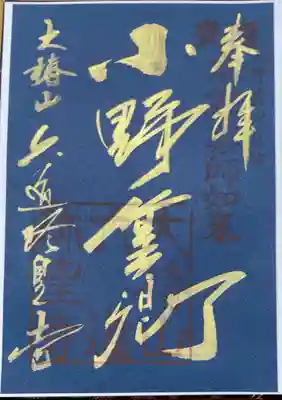 奉拝
小野篁卿
大椿山 六道珍皇寺